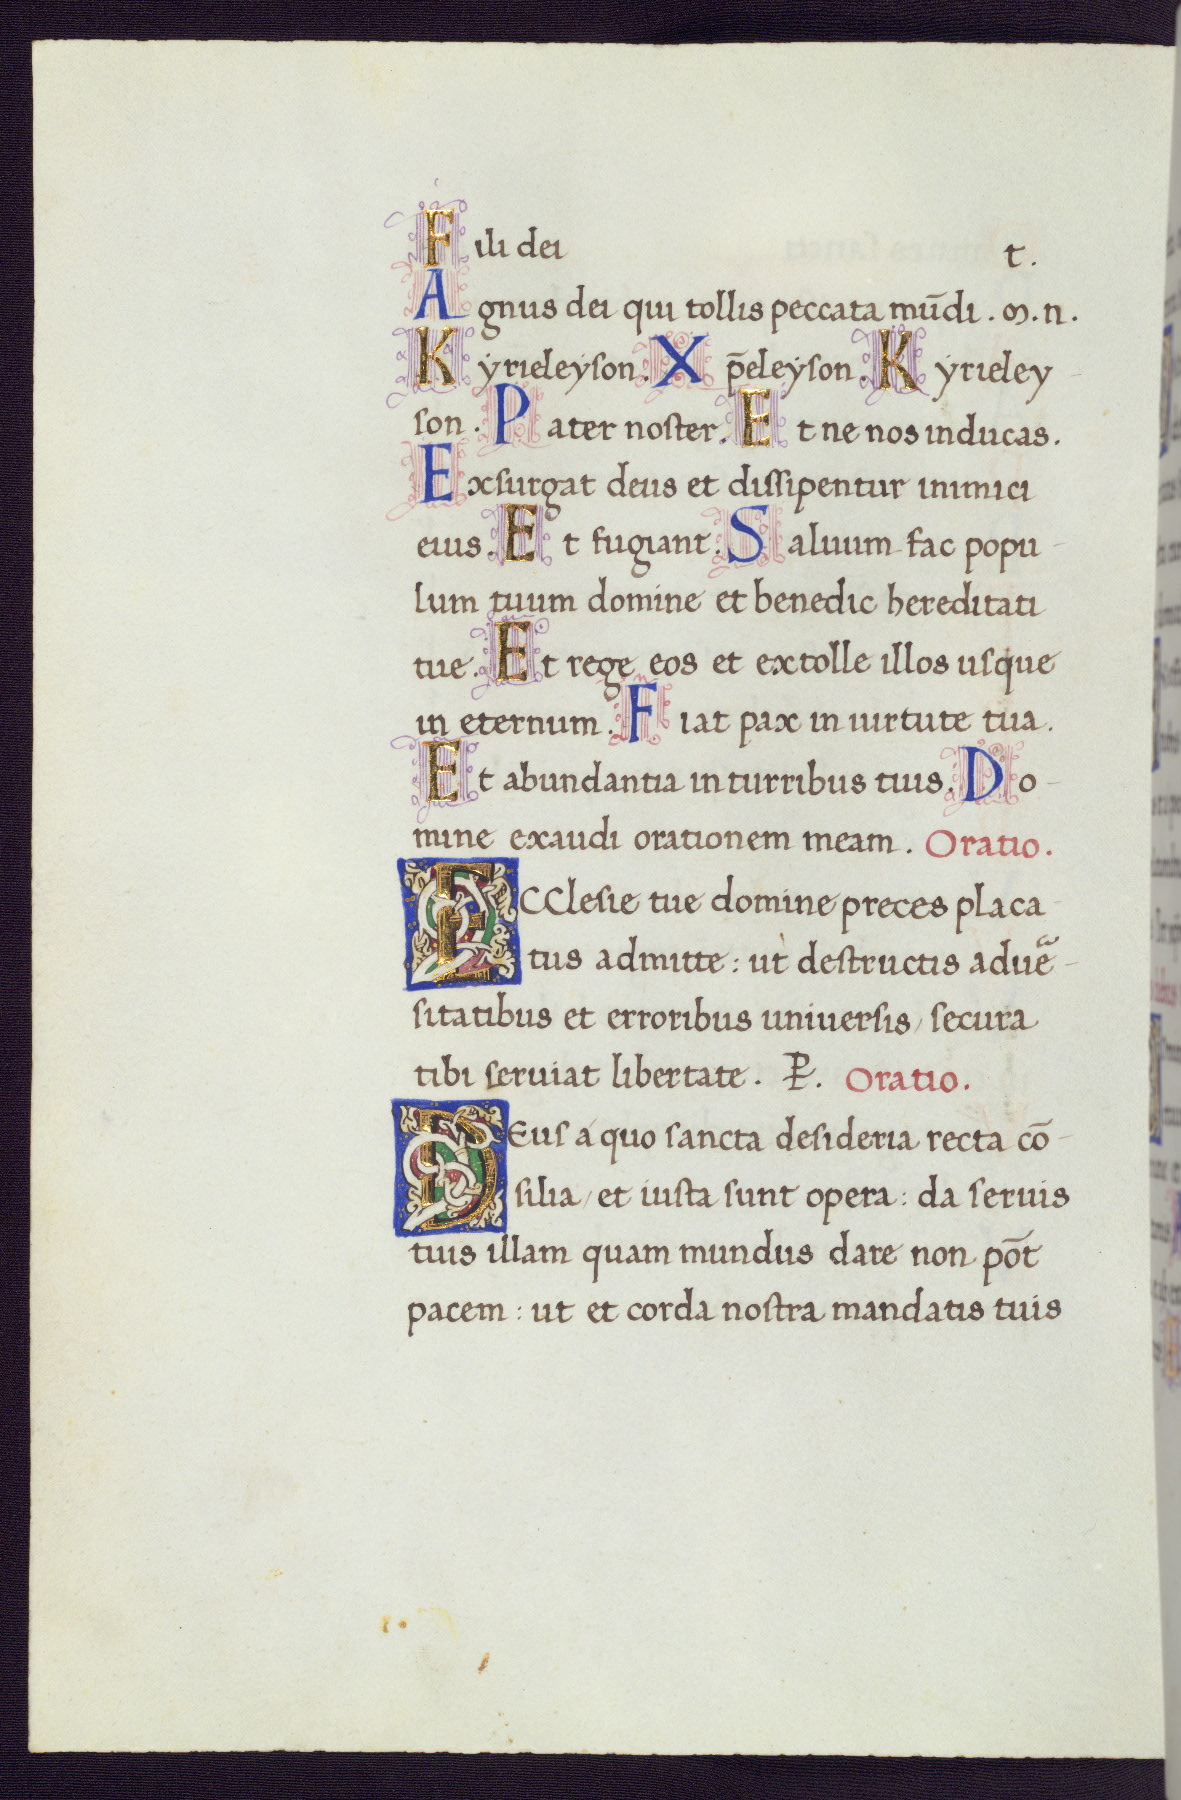 Fili dei t.
Agnus dei qui tollis peccata mūdi . m . n .
Kyrieleyson . Xp̄eleyson . Kyrieley
son . Pater noster . Et ne nos inducas .
Exsurgat deus et dissipentur inimici
eius . Et fugiant . Saluum fac popu
lum tuum domine et benedic hereditati
tue . Et rege eos et extolle illos usque
in eternum . Fiat pax in uirtute tua .
Et abundantia in turribus tuis . Do
mine exaudi orationem meam . Oratio .
ECClesie tue domine preces placa
tus admitte : ut destructis aduē
sitatibus et erroribus uniuersis / secura
tibi seruiat libertate . P . Oratio .
DEus a quo sancta desideria recta cō
silia / et iusta sunt opera : da seruis
tuis illam quam mundus dare non pōt
pacem : ut et corda nostra mandatis tuis